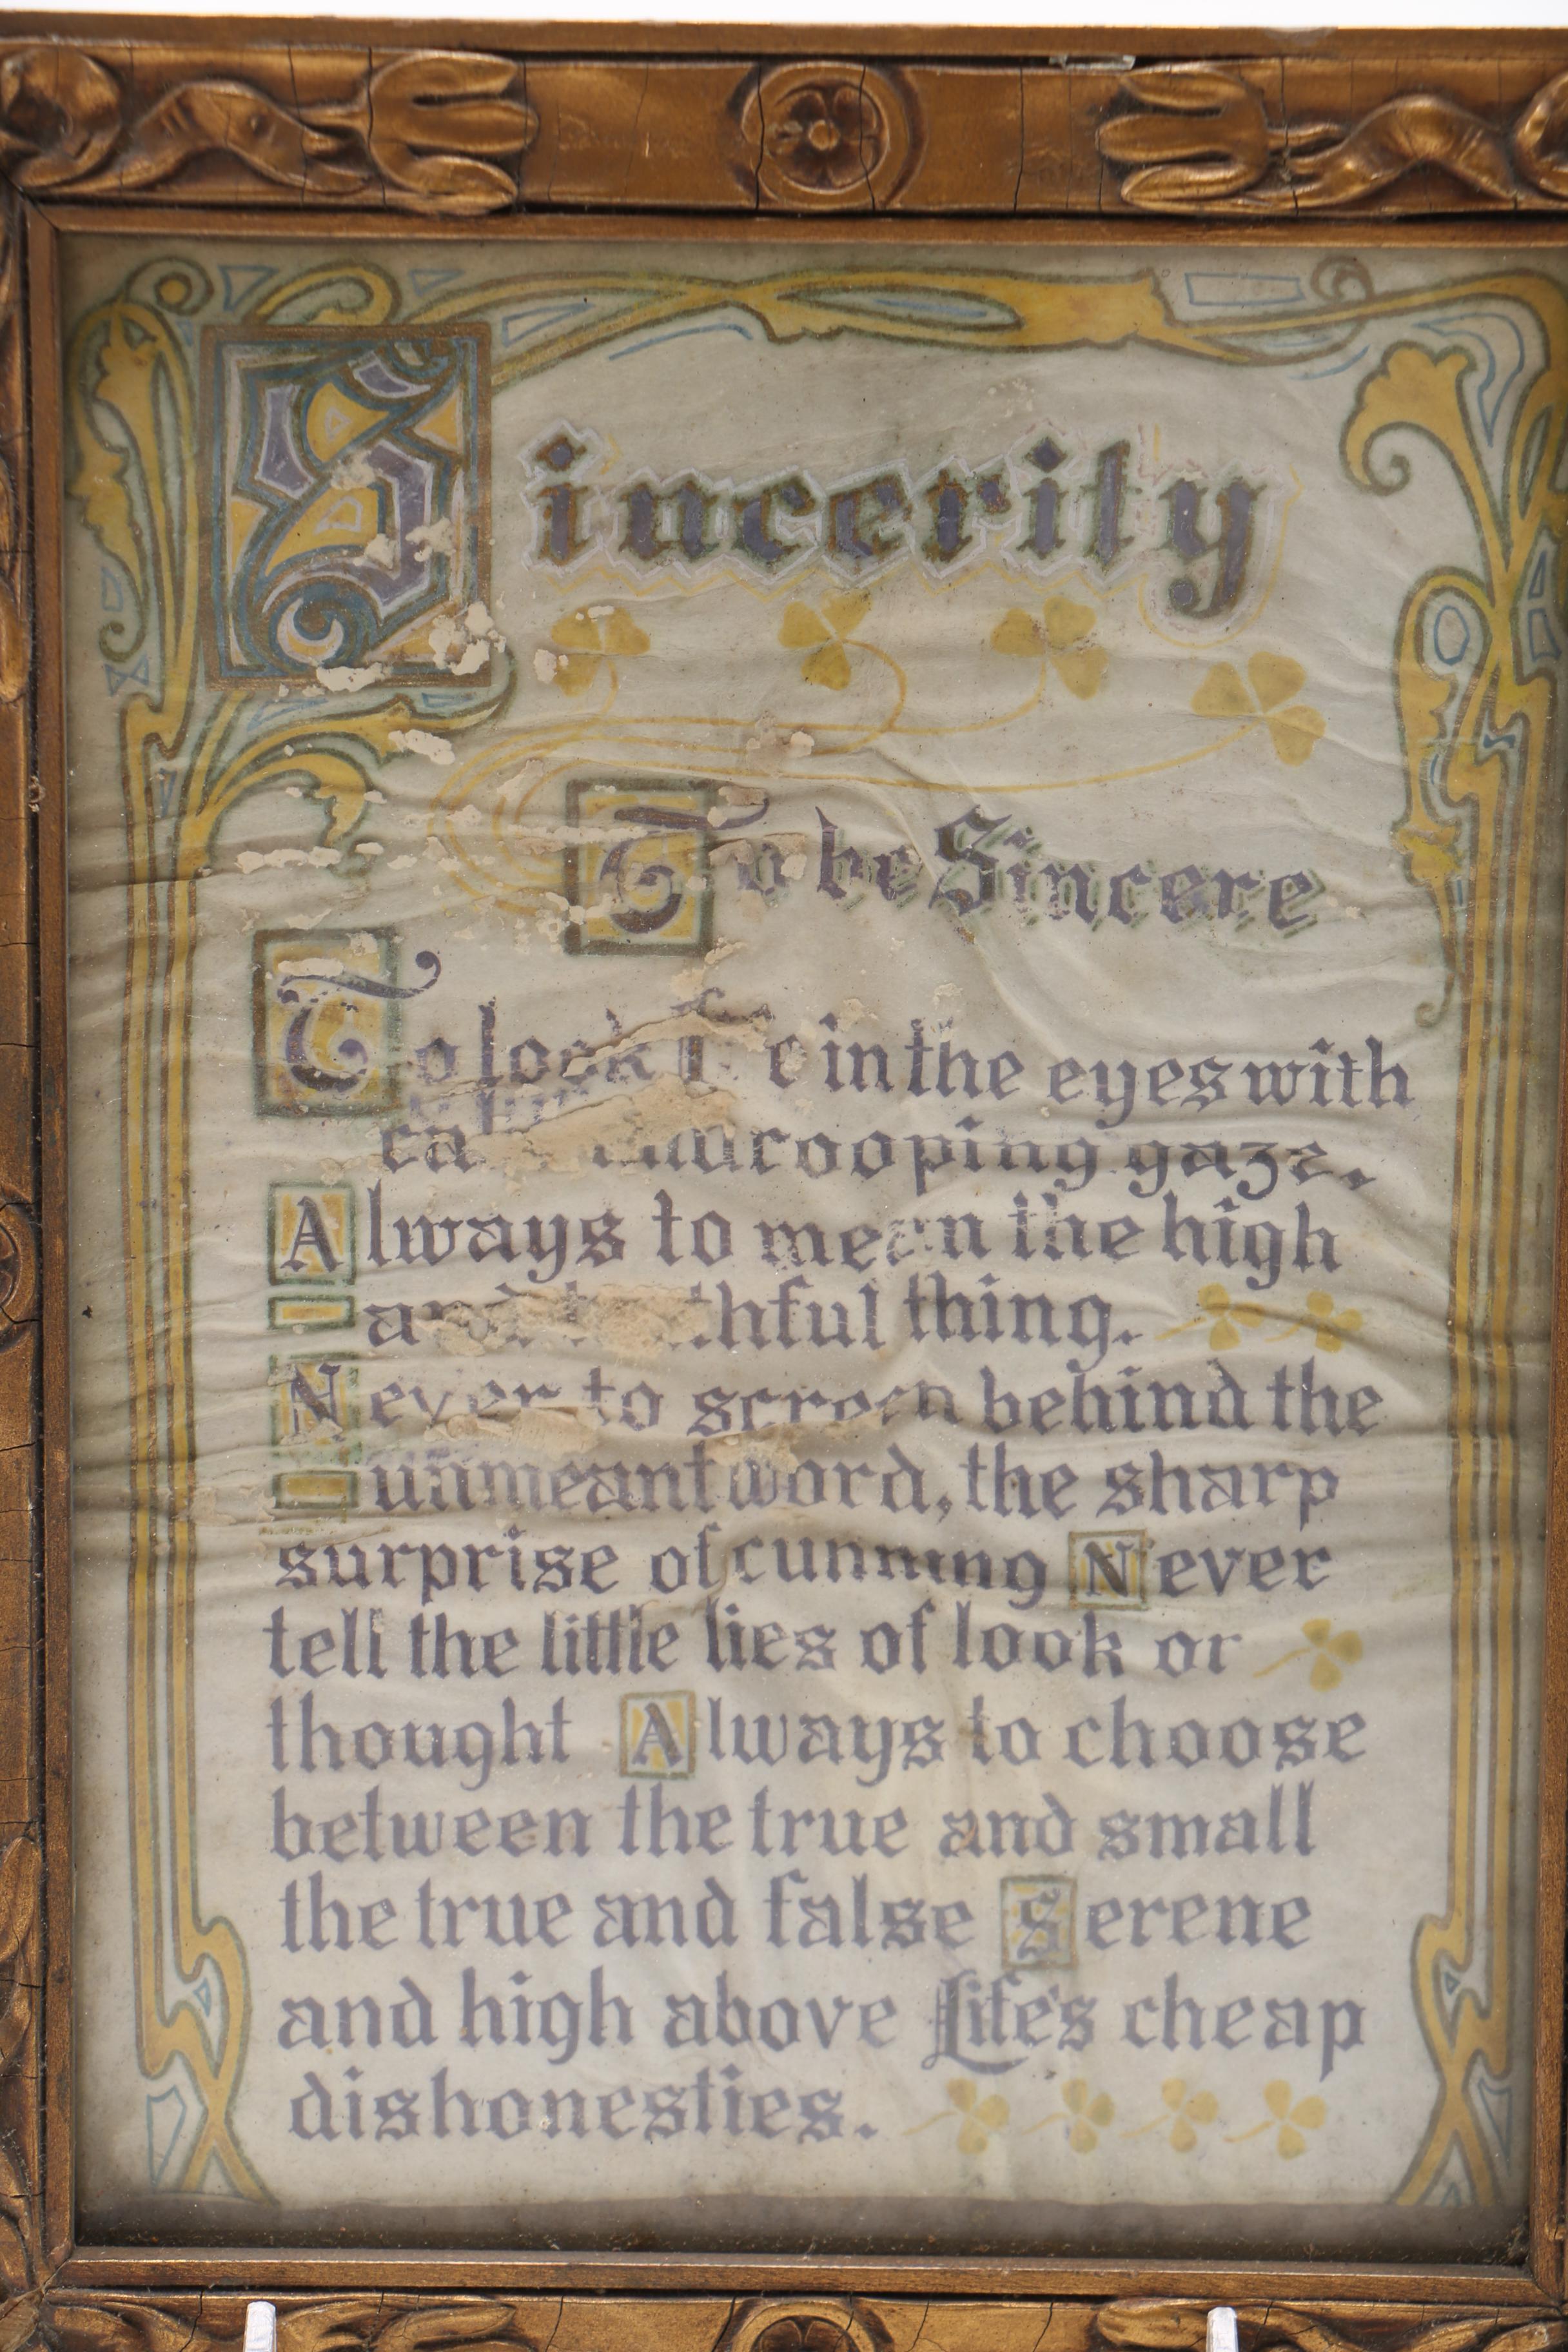 Sincerity
To be Sincere
To look in the eyes with
drooping gaze.
Always to mean the high
and thing.
Never to screen behind the
unmeant word, the sharp
surprise of cunning Never
tell the little lies of look or
thought Always to choose
between the true and small
the true and false Serene
and high above Life's cheap
dishonesties.